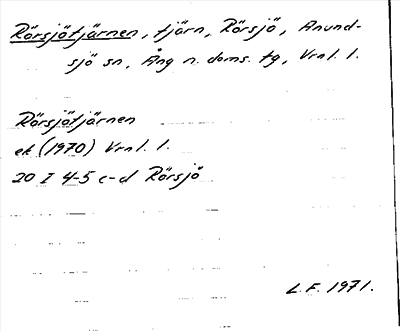 Rörsjötjärnen, tjärn, Rörsjö, Anund-
sjö sn, Ång n. doms. tg, Vrnl. l.
Rörsjötjärnen
ek (1970) Vrnl. l.
20 I 4-5 c-d Rörsjö
L.F. 1971.